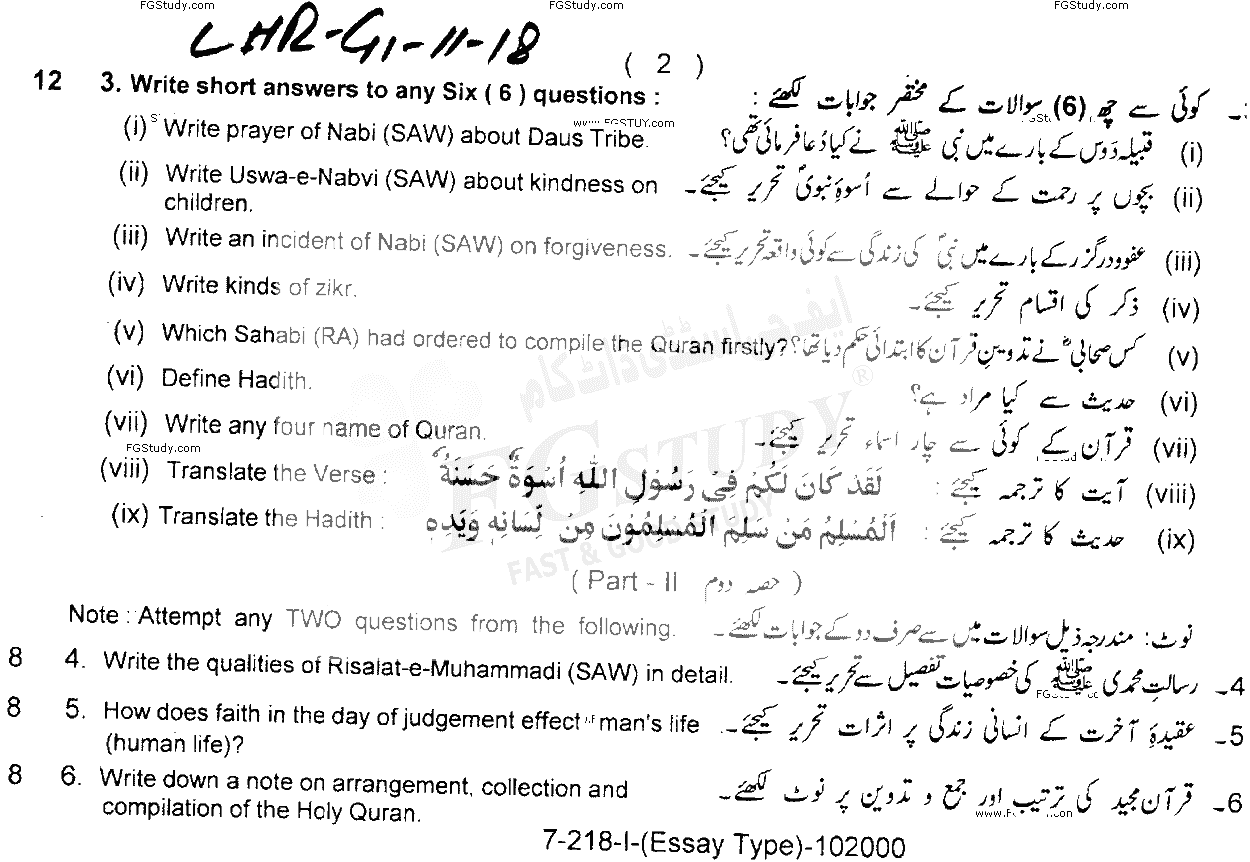 FGStudy.com FGStudy.com FGStudy.com
LHR-G1-11-18
( 2 )
12 3. Write short answers to any Six ( 6 ) questions : کوئی سے چھ (6) سوالات کے مختصر جوابات لکھئے :
www.FGSTUY.com
(i) Write prayer of Nabi (SAW) about Daus Tribe. (i) قبیلہ دَوس کے بارے میں نبی ﷺ نے کیا دُعا فرمائی تھی؟
(ii) Write Uswa-e-Nabvi (SAW) about kindness on (ii) بچوں پر رحمت کے حوالے سے اُسوۂ نبویؐ تحریر کیجئے۔
children.
(iii) Write an incident of Nabi (SAW) on forgiveness. (iii) عفوودرگزر کے بارے میں نبیؐ کی زندگی سے کوئی واقعہ تحریر کیجئے۔
(iv) Write kinds of zikr. (iv) ذکر کی اقسام تحریر کیجئے۔
(v) Which Sahabi (RA) had ordered to compile the Quran firstly? (v) کس صحابیؓ نے تدوینِ قرآن کا ابتدائی حکم دیا تھا؟
(vi) Define Hadith. (vi) حدیث سے کیا مراد ہے؟
(vii) Write any four name of Quran. (vii) قرآن کے کوئی سے چار اسماء تحریر کیجئے۔
FGStudy.com
(viii) Translate the Verse : لَقَدْ كَانَ لَكُمْ فِىْ رَسُوْلِ اللّٰهِ اُسْوَةٌ حَسَنَةٌ (viii) آیت کا ترجمہ کیجئے :
(ix) Translate the Hadith : اَلْمُسْلِمُ مَنْ سَلِمَ الْمُسْلِمُوْنَ مِنْ لِّسَانِهٖ وَيَدِهٖ (ix) حدیث کا ترجمہ کیجئے :
ایف جی اسٹڈی ڈاٹ کام
FG STUDY ®
FAST & GOOD STUDY
( Part - II حصہ دوم )
Note : Attempt any TWO questions from the following. نوٹ: مندرجہ ذیل سوالات میں سے صرف دو کے جوابات لکھئے۔
8 4. Write the qualities of Risalat-e-Muhammadi (SAW) in detail. 4۔ رسالتِ محمدی ﷺ کی خصوصیات تفصیل سے تحریر کیجئے۔
8 5. How does faith in the day of judgement effect man's life 5۔ عقیدۂ آخرت کے انسانی زندگی پر اثرات تحریر کیجئے۔
(human life)?
8 6. Write down a note on arrangement, collection and 6۔ قرآن مجید کی ترتیب اور جمع و تدوین پر نوٹ لکھئے۔
compilation of the Holy Quran.
7-218-I-(Essay Type)-102000